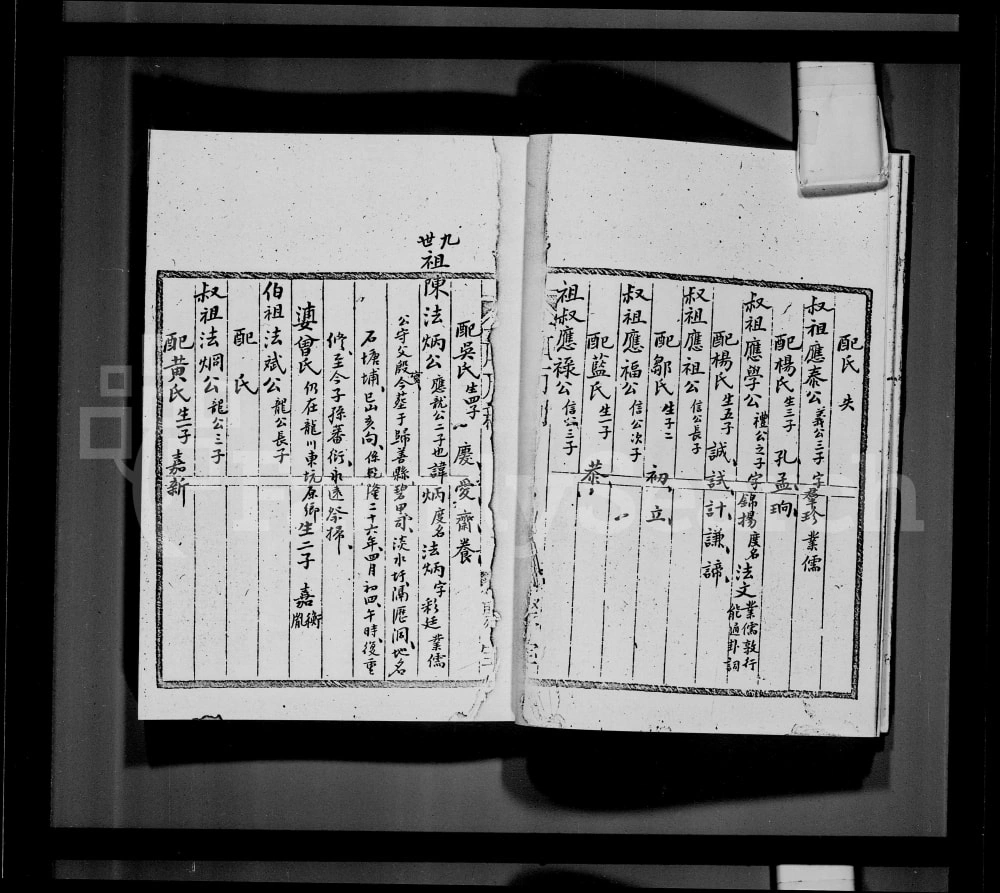 配氏失
叔祖應泰公 義公三子 字羣珍 業儒
配楊氏 生三子 孔 孟 珦
叔祖應學公 禮公之子 字錦揚 度名法文 業儒敦行 能通卦詞
配楊氏 生五子 誠 試 計 謙 諦
叔祖應祖公 信公長子
配鄒氏 生子二 初 立
叔祖應福公 信公次子
配藍氏 生一子 恭
祖叔應祿公 信公三子
配吳氏 生四子 慶 愛 齋 養
九世
祖陳法炳公 應就公二子也 諱炳 度名法炳 字彩廷 業儒
公守父殿今塟于歸善縣碧甲司淡水圩隔厯洞地名
石塘埔 巳山亥向 係乾隆二十六年四月初四午時復重
修至今子孫蕃衍永遠祭掃
婆曾氏 仍在龍川東坑原鄉 生二子 嘉衡 胤
伯祖法斌公 龍公長子
配 氏
叔祖法烱公 龍公三子
配黃氏 生一子 嘉新